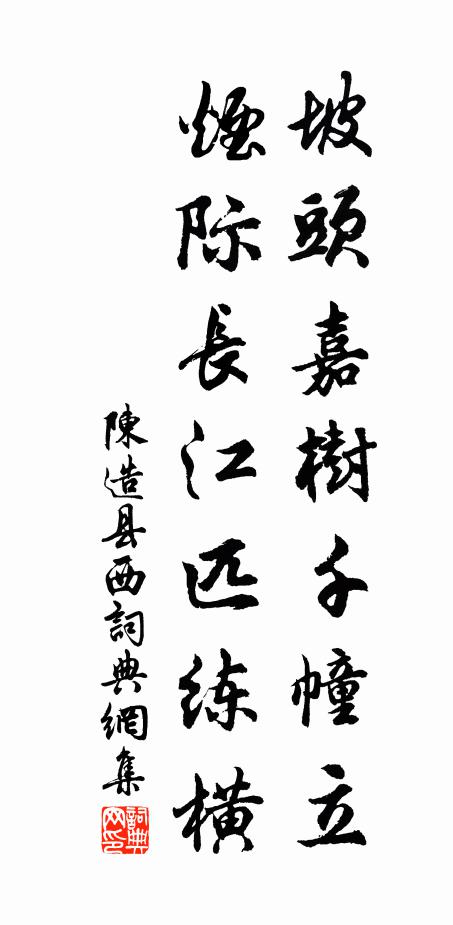 坡頭嘉樹千幢立
煙际長江匹练橫
陳造县西詞典網集
詞典网印